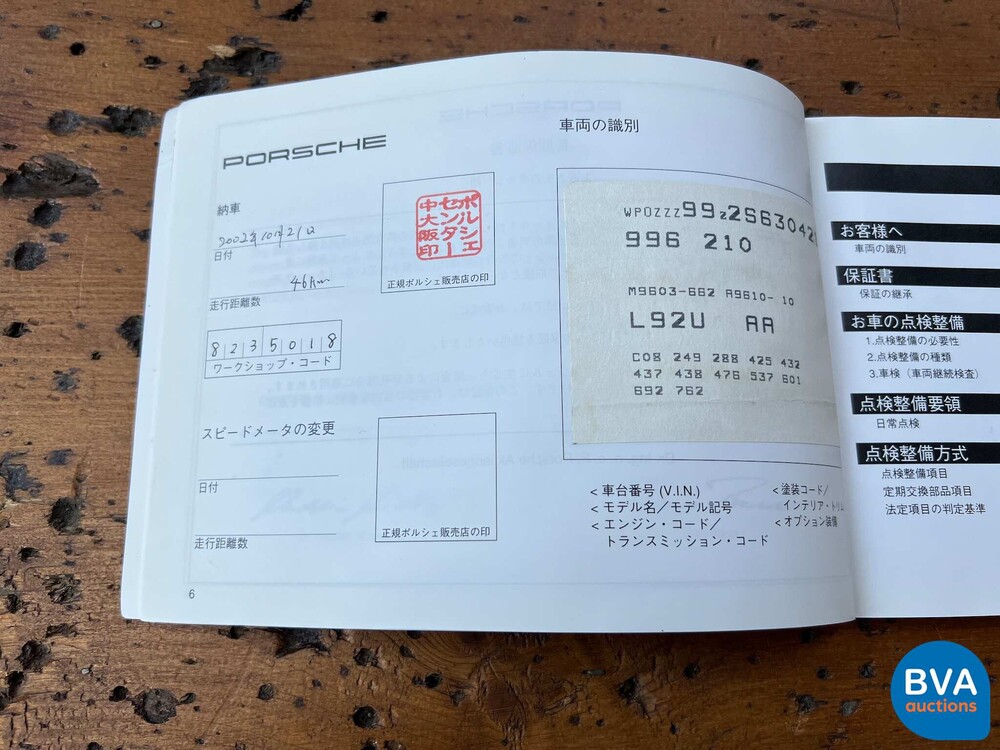 PORSCHE
納車
2002年10月21日
日付
46km
走行距離数
8 2 3 5 0 1 8
ワークショップ・コード
ポルシェ
センター
中大阪印
正規ポルシェ販売店の印
スピードメータの変更
日付
走行距離数
正規ポルシェ販売店の印
6
車両の識別
996 210
M9603-662 A9610- 10
L92U AA
C08 249 288 425 432
437 438 476 537 601
692 762
< 車台番号 (V.I.N.)
< モデル名／モデル記号
< エンジン・コード／
トランスミッション・コード
< 塗装コード／
インテリア・トリム
< オプション装備
お客様へ
車両の識別
保証書
保証の継承
お車の点検整備
1.点検整備の必要性
2.点検整備の種類
3.車検（車両継続検査）
点検整備要領
日常点検
点検整備方式
点検整備項目
定期交換部品項目
法定項目の判定基準
BVA
auctions